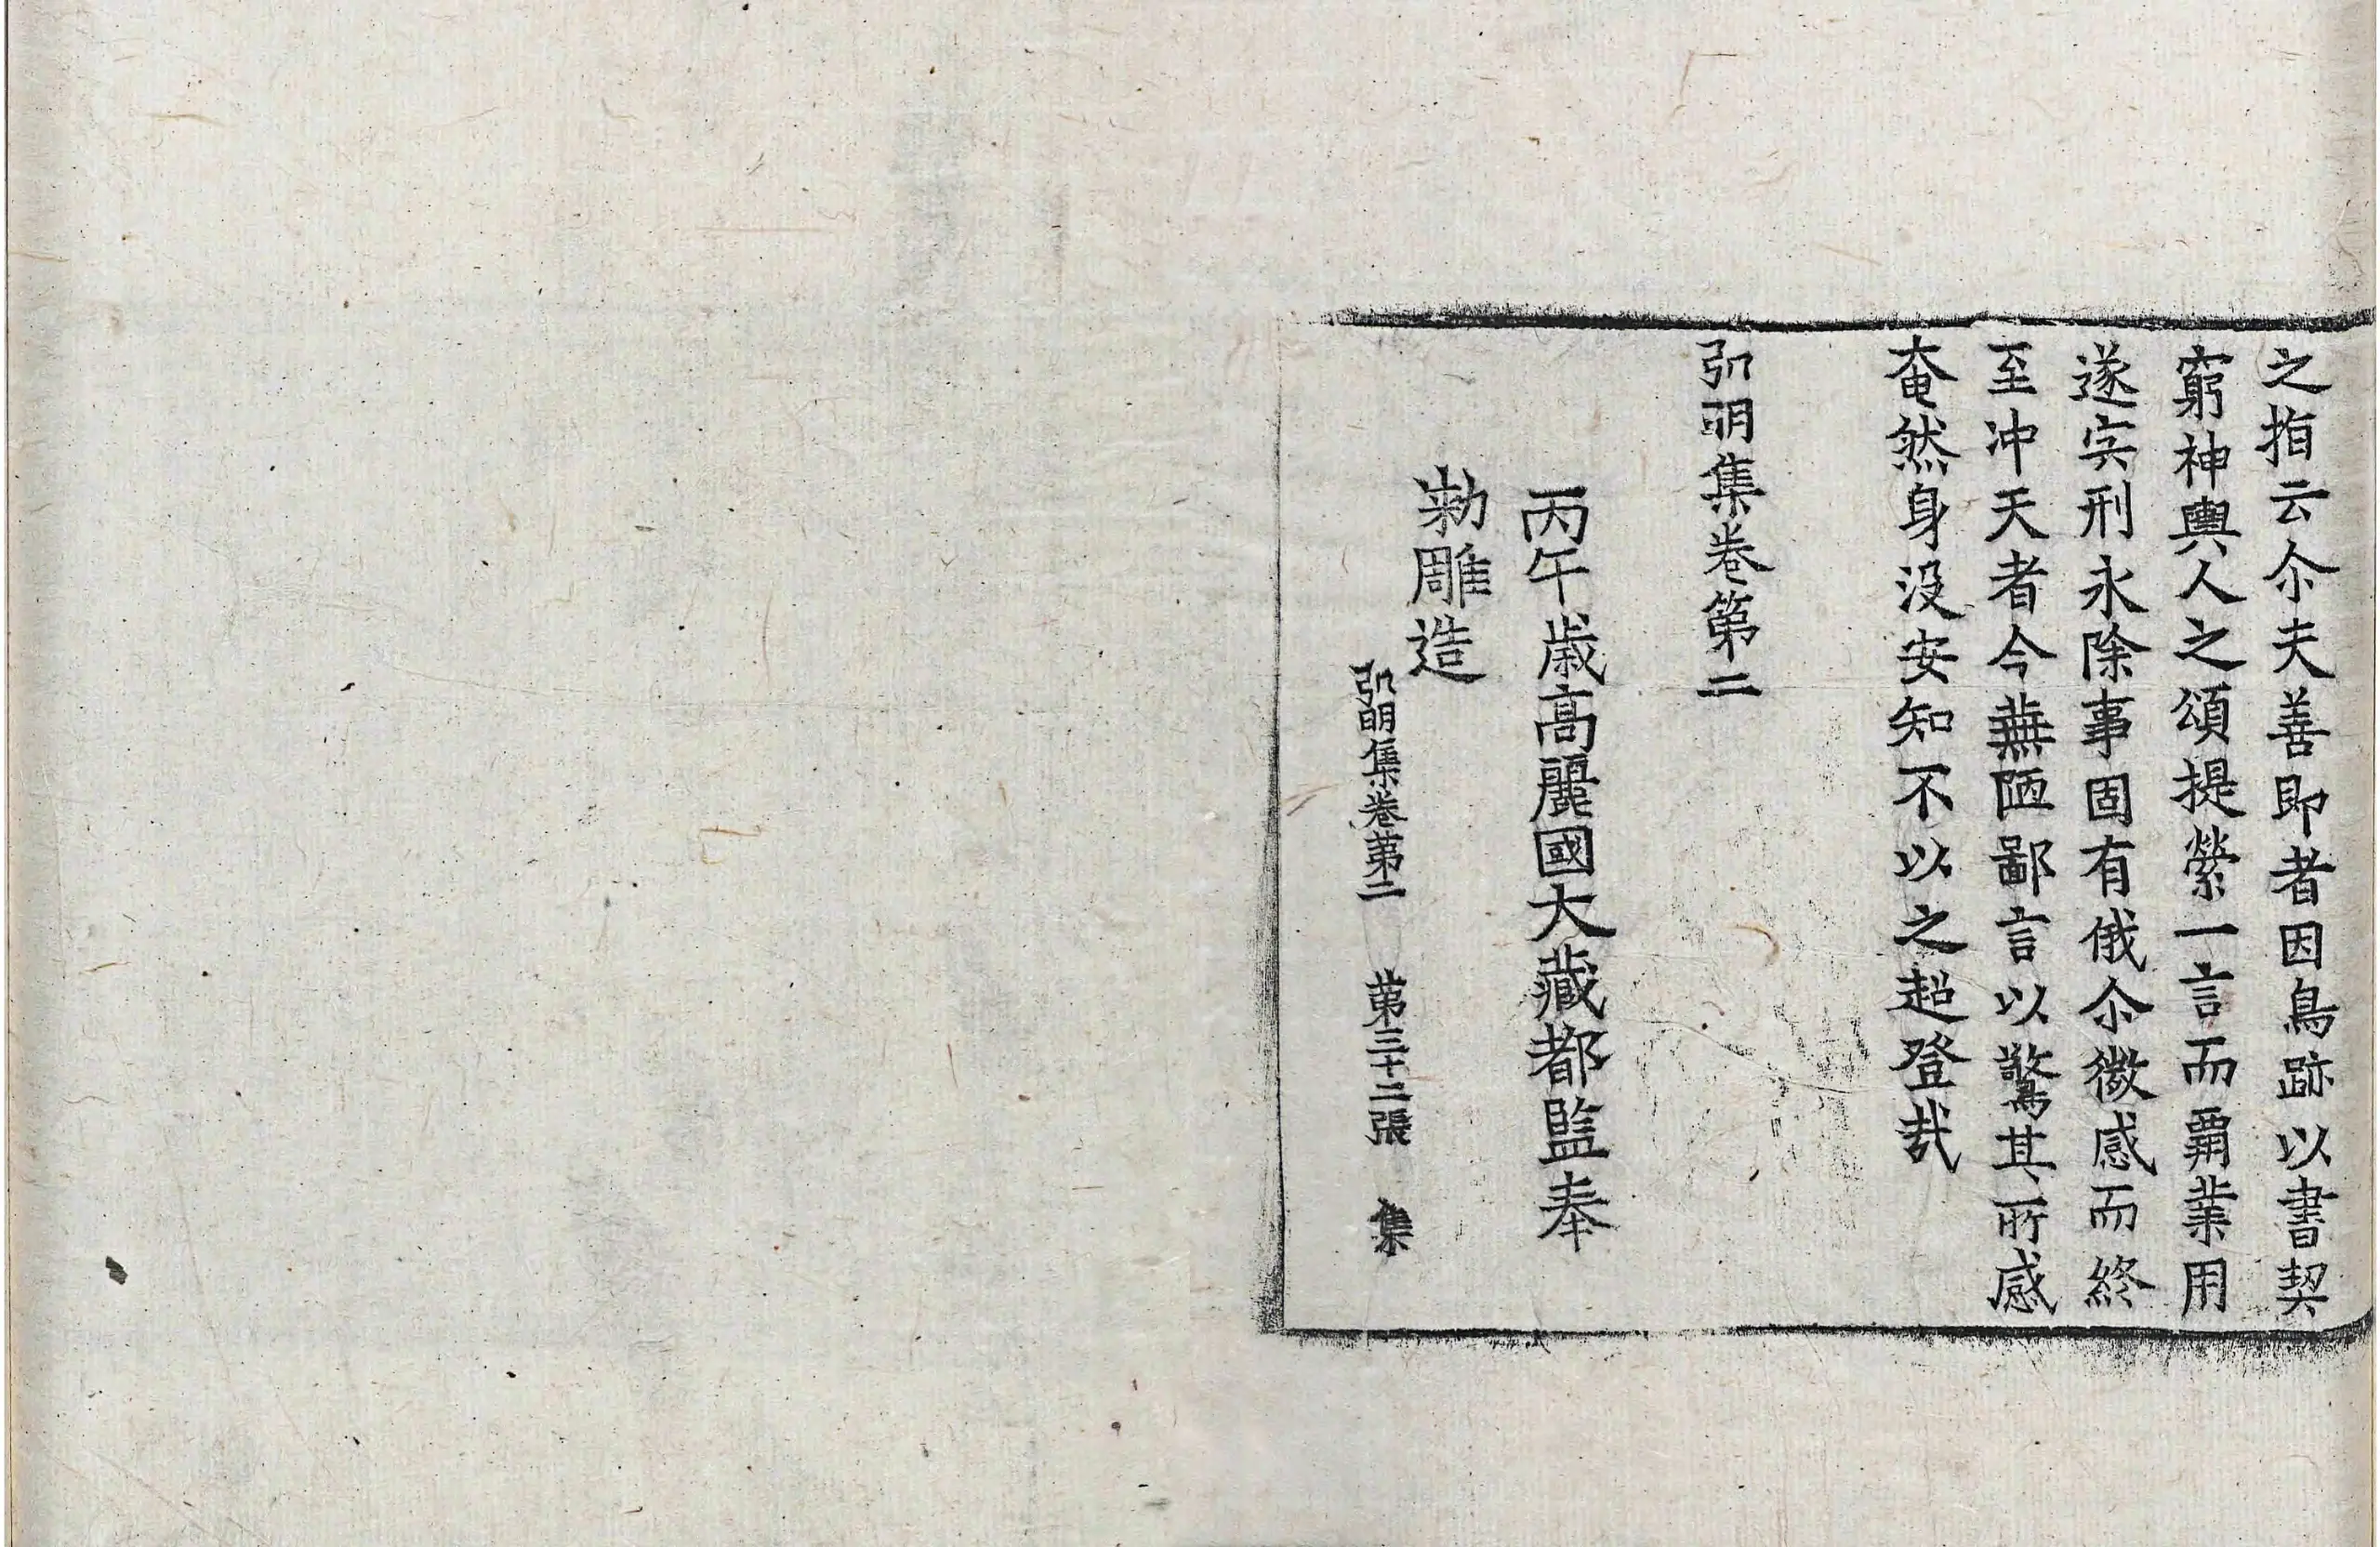 之指云尒夫善即者因鳥跡以書契
窮神輿人之頌提縈一言而霸業用
遂宍刑永除事固有俄尒微感而終
至冲天者今蕪陋鄙言以驚其所感
奄然身没安知不以之超登哉
弘明集卷第二
丙午歲高麗國大藏都監奉
勅雕造
弘明集卷第二 第三十二張 集